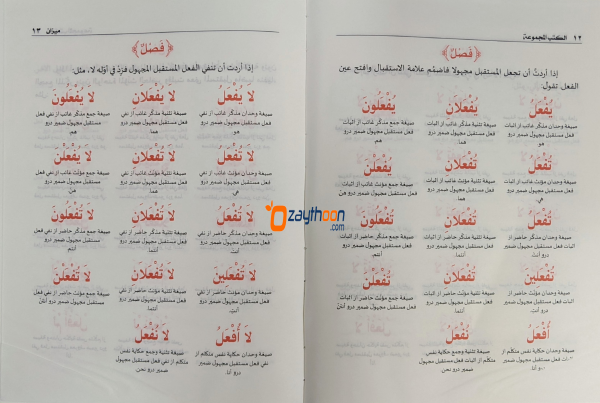 ١٢ الكتب المجموعة
﴿فَصْلٌ﴾
إذا أردتَ أن تجعل المستقبل مجهولا فاضمُم علامة الاستقبال وافتح عين
الفعل تقول:
يُفْعَلُ يُفْعَلَانِ يُفْعَلُونَ
صيغة وحدان مذكر غائب از اثبات صيغة تثنية مذكر غائب از اثبات صيغة جمع مذكر غائب از اثبات
فعل مستقبل مجهول ضمير درو فعل مستقبل مجهول ضمير درو فعل مستقبل مجهول ضمير درو
هو. هما. هم.
تُفْعَلُ تُفْعَلَانِ يُفْعَلْنَ
صيغة وحدان مؤنث غائب از اثبات صيغة تثنية مؤنث غائب از اثبات صيغة جمع مؤنث غائب از اثبات
فعل مستقبل مجهول ضمير درو فعل مستقبل مجهول ضمير درو فعل مستقبل مجهول ضمير درو هن
هي. هما.
تُفْعَلُ تُفْعَلَانِ تُفْعَلُونَ
صيغة وحدان مذكر حاضر از صيغة تثنية مذكر حاضر از اثبات صيغة جمع مذكر حاضر از اثبات
اثبات فعل مستقبل مجهول ضمير فعل مستقبل مجهول ضمير درو فعل مستقبل مجهول ضمير درو
درو أنت. أنتما. أنتم.
تُفْعَلِينَ تُفْعَلَانِ تُفْعَلْنَ
صيغة وحدان مؤنث حاضر از صيغة تثنية مؤنث حاضر از اثبات صيغة جمع مؤنث حاضر از اثبات
اثبات فعل مستقبل مجهول ضمير فعل مستقبل مجهول ضمير درو فعل مستقبل مجهول ضمير درو أنتن
درو أنتِ. أنتما.
أُفْعَلُ نُفْعَلُ
صيغة وحدان حكاية نفس متكلم از صيغة تثنية وجمع حكاية نفس
فعل مستقبل مجهول ضمير متكلم از اثبات فعل مستقبل مجهول
درو أنا. ضمير درو نحن.
ميزان ١٣
﴿فَصْلٌ﴾
إذا أردت أن تنفي الفعل المستقبل المجهول فزِدْ في أوّله لا، مثل:
لَا يُفْعَلُ لَا يُفْعَلَانِ لَا يُفْعَلُونَ
صيغة وحدان مذكر غائب از نفي صيغة تثنية مذكر غائب از نفي صيغة جمع مذكر غائب از نفي
فعل مستقبل مجهول ضمير درو فعل مستقبل مجهول ضمير درو فعل مستقبل مجهول ضمير درو
هو. هما. هم.
لَا تُفْعَلُ لَا تُفْعَلَانِ لَا يُفْعَلْنَ
صيغة وحدان مؤنث غائب از نفي صيغة تثنية مؤنث غائب از نفي صيغة جمع مؤنث غائب از نفي
فعل مستقبل مجهول ضمير درو فعل مستقبل مجهول ضمير درو فعل مستقبل مجهول ضمير درو
هي. هما. هن.
لَا تُفْعَلُ لَا تُفْعَلَانِ لَا تُفْعَلُونَ
صيغة وحدان مذكر حاضر از نفي صيغة تثنية مذكر حاضر از نفي صيغة جمع مذكر حاضر از نفي
فعل مستقبل مجهول ضمير درو فعل مستقبل مجهول ضمير درو فعل مستقبل مجهول ضمير درو
أنت. أنتما. أنتم.
لَا تُفْعَلِينَ لَا تُفْعَلَانِ لَا تُفْعَلْنَ
صيغة وحدان مؤنث حاضر از نفي صيغة تثنية مؤنث حاضر از نفي صيغة جمع مؤنث حاضر از نفي
فعل مستقبل مجهول ضمير درو فعل مستقبل مجهول ضمير درو فعل مستقبل مجهول ضمير درو أنتن
أنتِ. أنتما.
لَا أُفْعَلُ لَا نُفْعَلُ
صيغة وحدان حكاية نفس متكلم از صيغة تثنية وجمع حكاية نفس
نفي فعل مستقبل مجهول ضمير متكلم از نفي فعل مستقبل مجهول
درو أنا. ضمير درو نحن.
zaythoon
.com